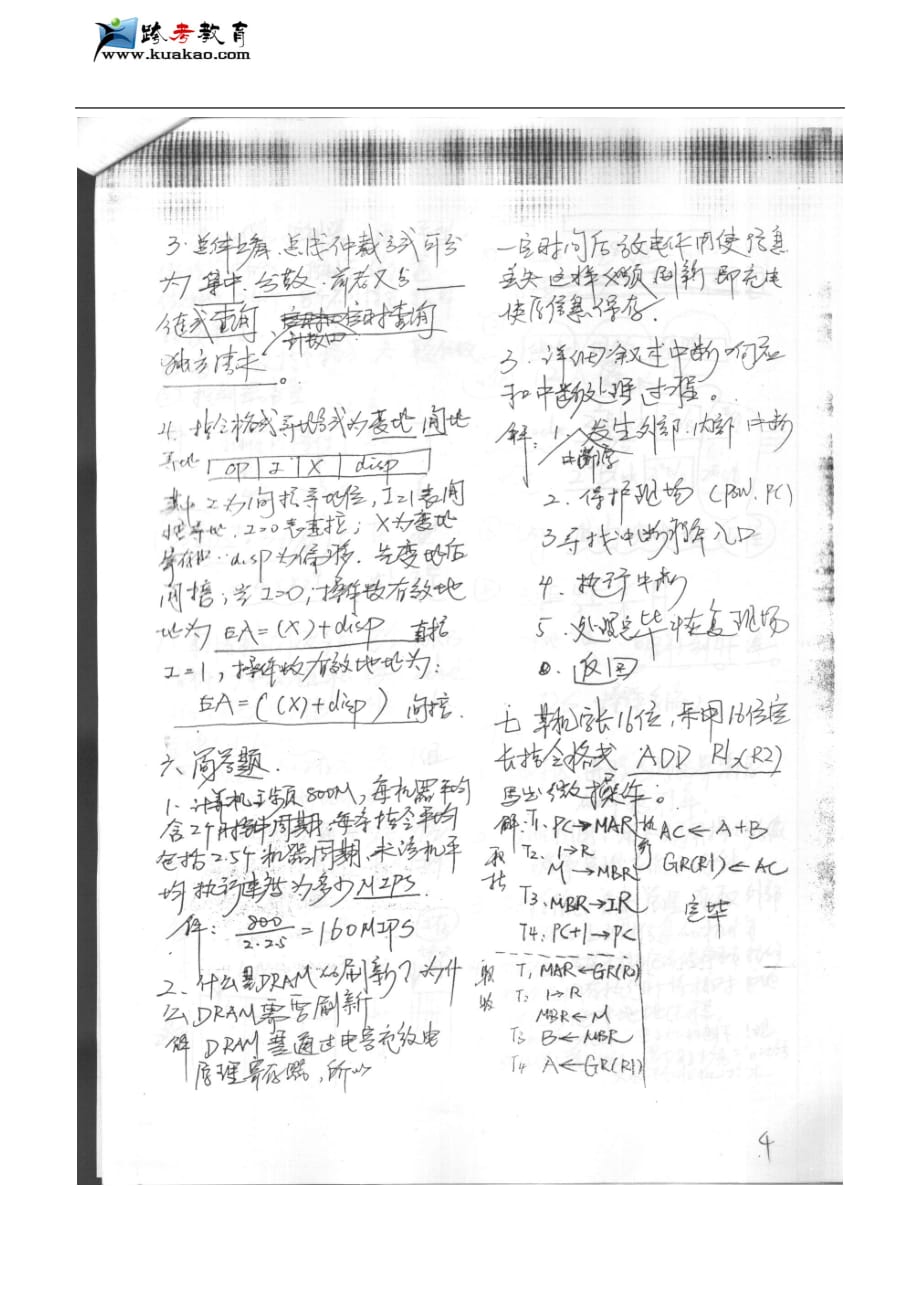 跨考教育
www.kuakao.com
3.总线上，总线仲裁方式可分
为 集中、分散.前者又分
链式查询 定时查询
计数
独立请求。
4.指令格式寻址方式为变址间址
寻址 OP I X disp
其中I为间接寻址位，I=1表间
接寻址，I=0表直接；X为变址
寄存，disp为偏移.先变址后
间接；当I=0，操作数有效地
址为 EA=(X)+disp 直接
I=1，操作数有效地址为：
EA=((X)+disp) 间接.
六、简答题.
1.计算机主频800M，每机器平均
含2个时钟周期，每条指令平均
包括2.5个机器周期，求该机平
均执行速度为多少MIPS.
解: 800/2·2.5 =160MIPS
2.什么是DRAM的刷新？为什
么DRAM需要刷新
解 DRAM是通过电容充放电
原理寄存器，所以
一定时间后放电作用使信息
丢失这样必须刷新 即充电
使信息保存.
3.详细叙述中断响应
和中断处理过程。
解: 1.发生外部.内部 中断
中断源
2.保护现场 (PSW.PC)
3寻找中断程序入口
4.执行中断
5.处理完毕恢复现场
6.返回
七 某机字长16位，采用16位定
长指令格式 ADD R1,(R2)
写出微操作。
解:T1.PC→MAR 执行 AC←A+B
取指 T2. 1→R GR(R1)←AC
M→MBR
T3:MBR→IR 完毕
T4:PC+1→PC
取数 T1 MAR←GR(R2)
T2 1→R
MBR←M
T3 B←MBR
T4 A←GR(R1)
4